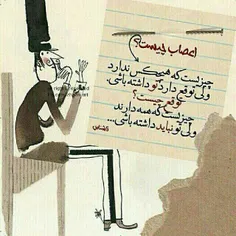 اعصاب چیست؟
چیزیست که هیچکس ندارد
ولی توقع دارد تو داشته باشی.
توقع چیست؟
چیزیست که همه دارند
ولی تو نباید داشته باشی...